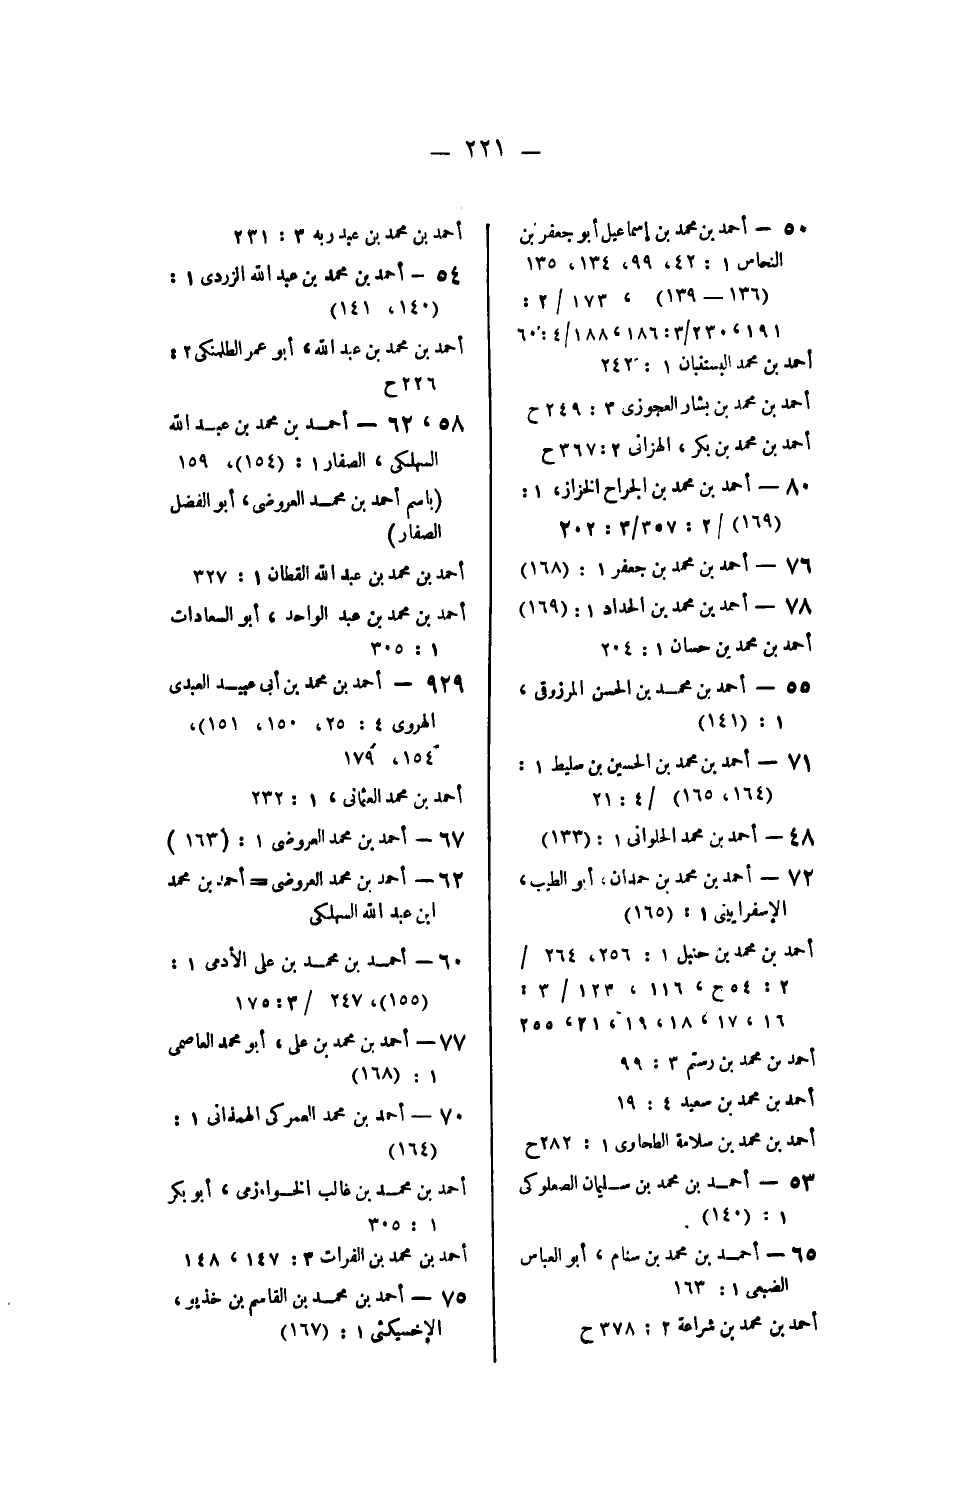 — ٢٢١ —
٥٠ — أحمد بن محمد بن إسماعيل أبو جعفر بن
النحاس ١ : ٤٢، ٩٩، ١٣٤، ١٣٥
(١٣٦ — ١٣٩) ، ١٧٣ / ٢ :
١٩١، ٢٣٠/٣: ١٨٦، ١٨٨/٤: ٦٠
أحمد بن محمد البستفبان ١ : ٢٤٢
أحمد بن محمد بن بشار العجوزى ٣ : ٢٤٩ ح
أحمد بن محمد بن بكر ، الهزانى ٢ : ٣٦٧ ح
٨٠ — أحمد بن محمد بن الجراح الخزاز، ١ :
(١٦٩) / ٢ : ٣٥٧/٣ : ٢٠٢
٧٦ — أحمد بن محمد بن جعفر ١ : (١٦٨)
٧٨ — أحمد بن محمد بن الحداد ١ : (١٦٩)
أحمد بن محمد بن حسان ١ : ٢٠٤
٥٥ — أحمد بن محمد بن الحسن المرزوقى ،
١ : (١٤١)
٧١ — أحمد بن محمد بن الحسين بن سليط ١ :
(١٦٤، ١٦٥) / ٤ : ٢١
٤٨ — أحمد بن محمد الحلوانى ١ : (١٣٣)
٧٢ — أحمد بن محمد بن حمدان، أبو الطيب،
الإسفرايينى ١ : (١٦٥)
أحمد بن محمد بن حنبل ١ : ٢٥٦، ٢٦٤ /
٢ : ٥٤ ح ، ١١٦ ، ١٢٣ / ٣ :
١٦ ، ١٧ ، ١٨ ، ١٩ ، ٢١ ، ٢٥٥
أحمد بن محمد بن رستم ٣ : ٩٩
أحمد بن محمد بن سعيد ٤ : ١٩
أحمد بن محمد بن سلامة الطحاوى ١ : ٢٨٢ ح
٥٣ — أحمد بن محمد بن سليمان الصعلوكى
١ : (١٤٠)
٦٥ — أحمد بن محمد بن سنام ، أبو العباس
الضبعى ١ : ١٦٣
أحمد بن محمد بن شراعة ٢ : ٣٧٨ ح
أحمد بن محمد بن عبد ربه ٣ : ٢٣١
٥٤ — أحمد بن محمد بن عبد الله الزردى ١ :
(١٤٠، ١٤١)
أحمد بن محمد بن عبد الله ، أبو عمر الطلمنكى ٢ :
٢٢٦ ح
٥٨ ، ٦٢ — أحمد بن محمد بن عبد الله
السهلكى ، الصفار ١ : (١٥٤)، ١٥٩
(باسم أحمد بن محمد العروضى ، أبو الفضل
الصفار)
أحمد بن محمد بن عبد الله القطان ١ : ٣٢٧
أحمد بن محمد بن عبد الواحد ، أبو السعادات
١ : ٣٠٥
٩٢٩ — أحمد بن محمد بن أبى عبيد العبدى
الهروى ٤ : ٢٥، ١٥٠، ١٥١)،
١٥٤، ١٧٩
أحمد بن محمد العثمانى ، ١ : ٢٣٢
٦٧ — أحمد بن محمد العروضى ١ : (١٦٣)
٦٢ — أحمد بن محمد العروضى = أحمد بن محمد
ابن عبد الله السهلكى
٦٠ — أحمد بن محمد بن على الأدمى ١ :
(١٥٥)، ٢٤٧ / ٣ : ١٧٥
٧٧ — أحمد بن محمد بن على ، أبو محمد العاصمى
١ : (١٦٨)
٧٠ — أحمد بن محمد العمركى الهمذانى ١ :
(١٦٤)
أحمد بن محمد بن غالب الخوارزمى ، أبو بكر
١ : ٣٠٥
أحمد بن محمد بن الفرات ٣ : ١٤٧ ، ١٤٨
٧٥ — أحمد بن محمد بن القاسم بن خذيو ،
الإخسيكثى ١ : (١٦٧)